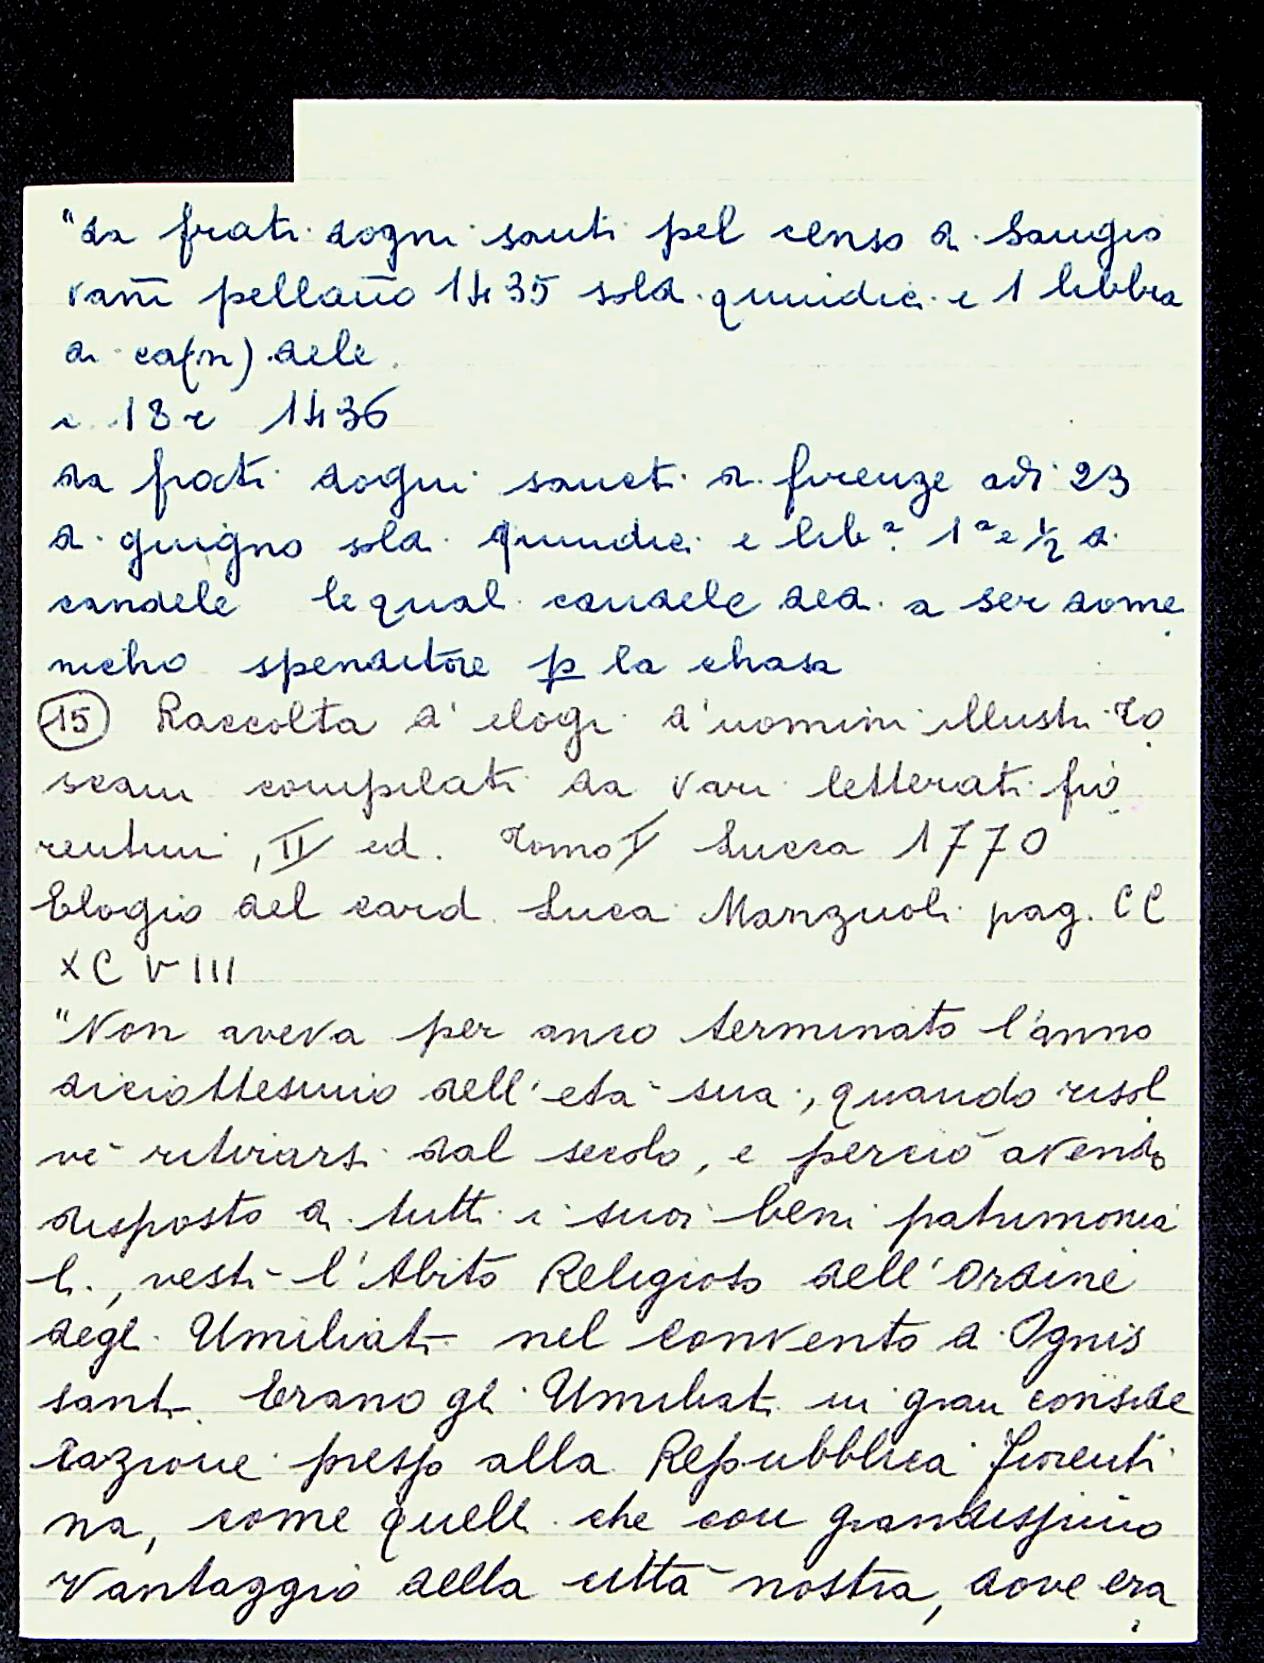 "da frati dogni santi pel censo di Sangio
vañi pellaño 1435 soldi quindici e 1 libbra
di ca(n)dele
c. 18 r 1436
da frati dogni sancti di firenze adi 23
di giugno soldi quindici e lib.ª 1ª e ½ di
candele le quali candele dedi a ser dome
nicho spenditore p la chasa
(15) Raccolta d'elogi d'uomini illustri To
scani compilati da vari letterati fio
rentini, II ed. Tomo I Lucca 1770
Elogio del card. Luca Manzuoli pag. CC
XC VIII
"Non aveva per anco terminato l'anno
diciottesimo dell'età sua, quando risol
vè ritirarsi dal secolo, e perciò avendo
disposto di tutti i suoi beni patrimonia
li, vestì l'Abito Religioso dell'Ordine
degli Umiliati nel Convento di Ognis
santi. Erano gli Umiliati in gran conside
razione presso alla Repubblica Fiorenti
na, come quelli che con grandissimo
vantaggio della città nostra, dove era